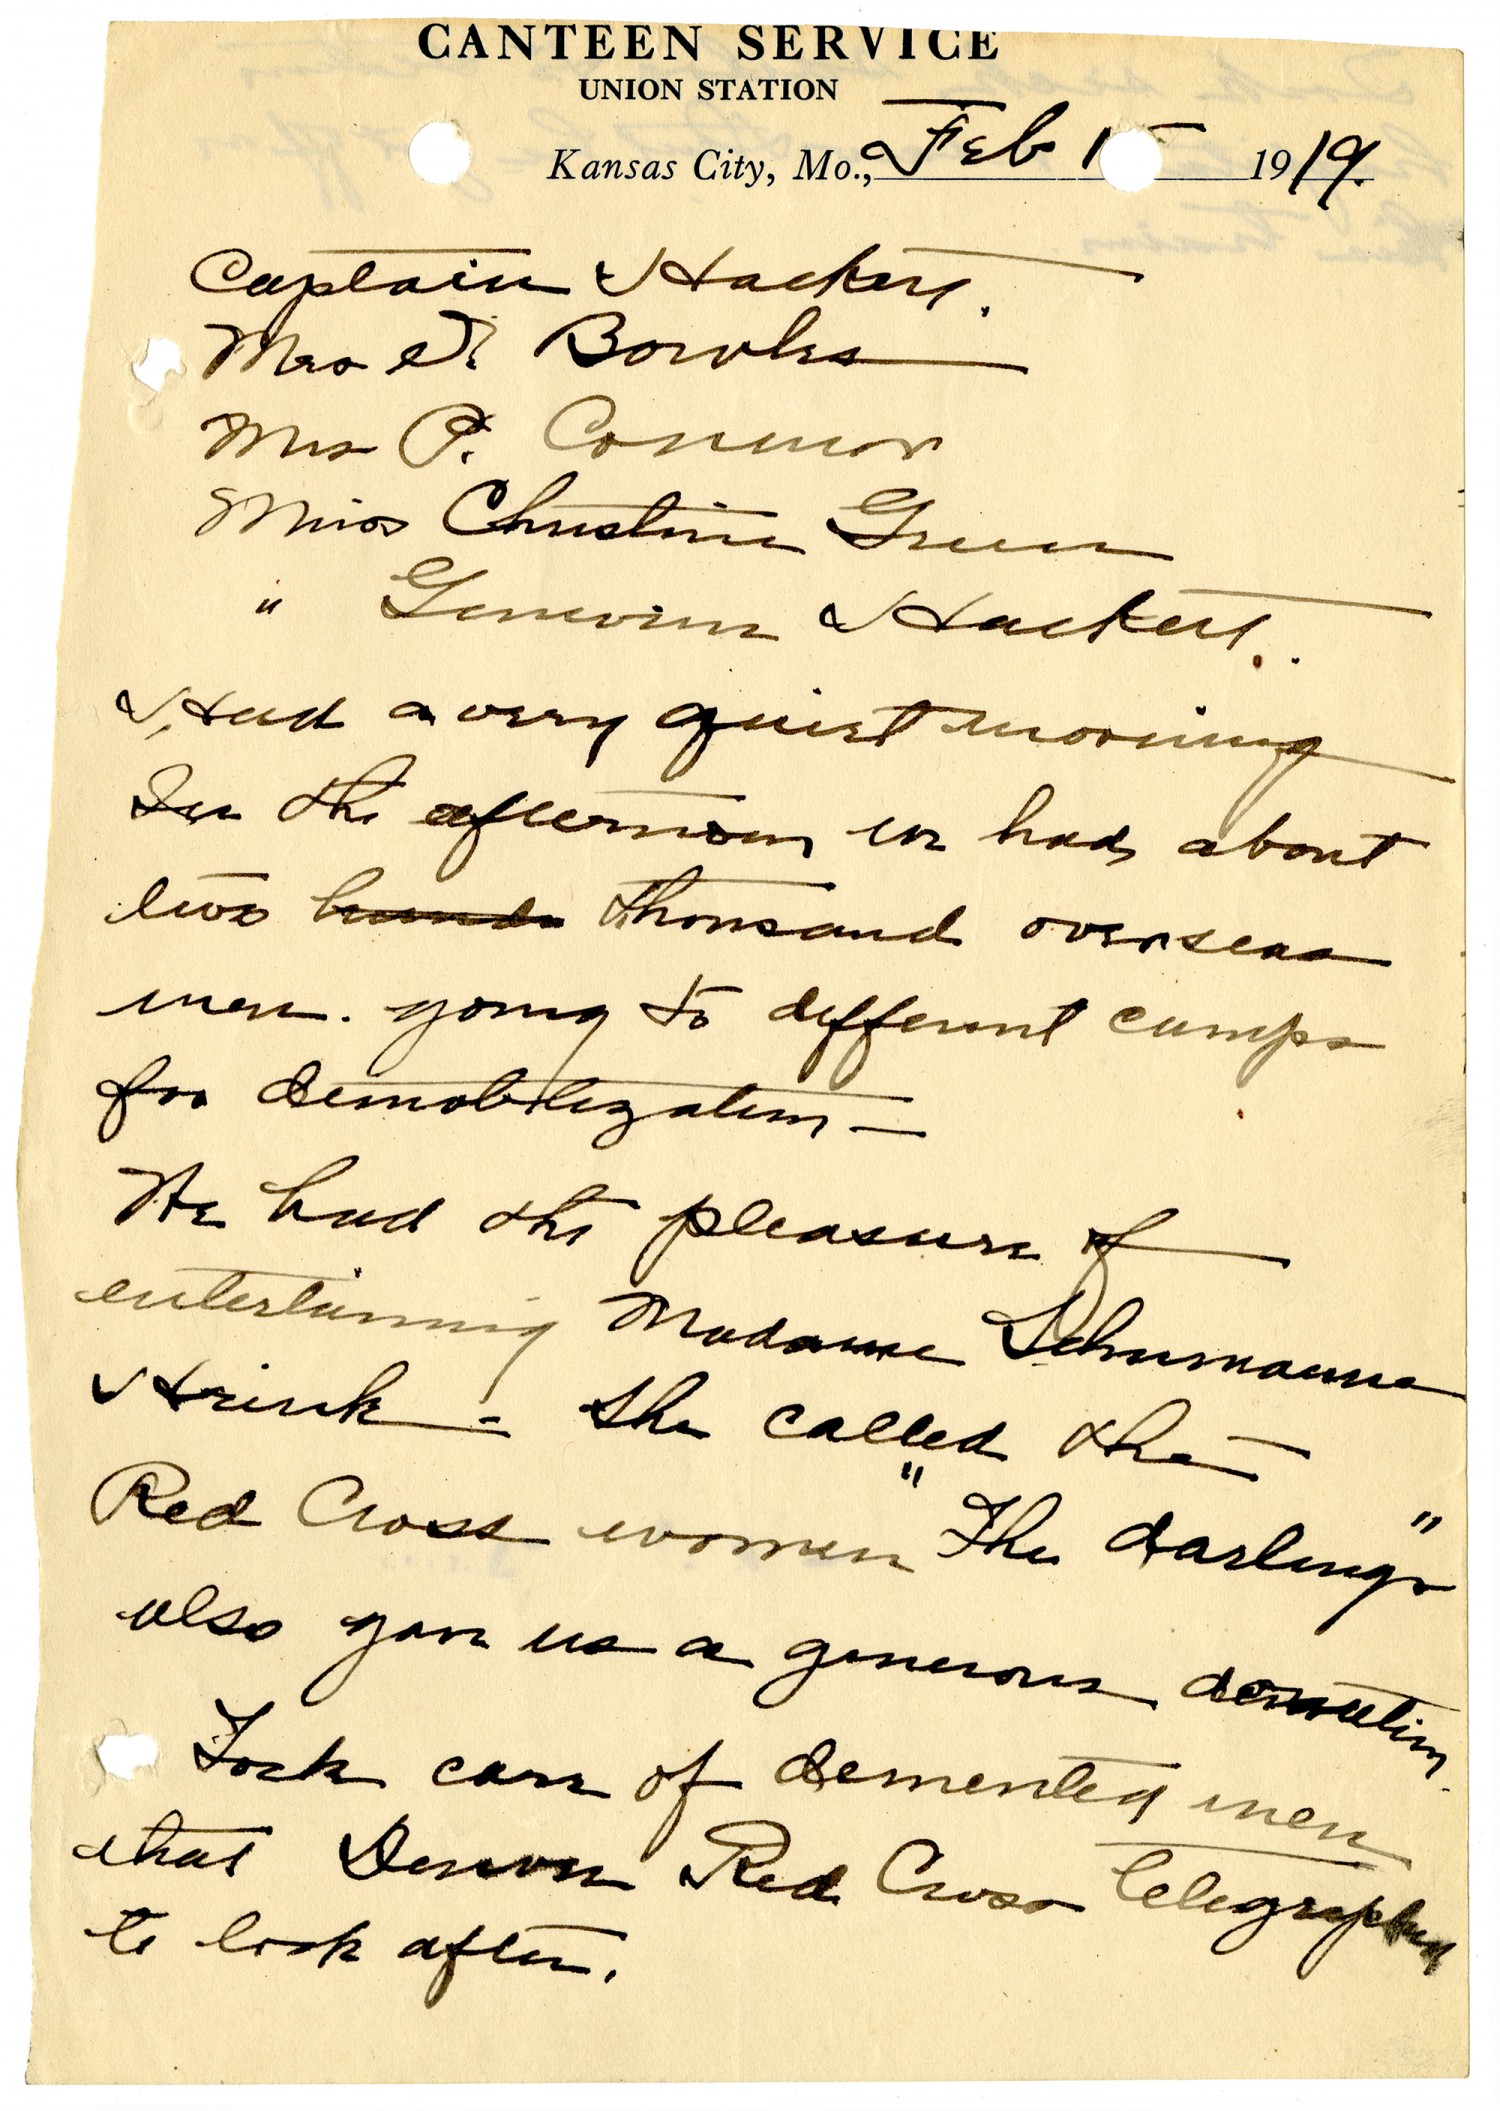 CANTEEN SERVICE
UNION STATION
Kansas City, Mo., Feb 15 1919.
Captain Hackett.
Mrs Bowles
Mrs P. Connor
Miss Christine Green
" Genevieve Hackett.
Had a very quiet morning
In the afternoon we had about
two hunds thousand overseas
men. going to different camps
for demobilization —
We had the pleasure of
entertaining Madame Schumann
Heink - She called the
Red Cross women "The darlings"
also gave us a generous donation.
Took care of demented men
that Denver Red Cross telegraphed
to look after.